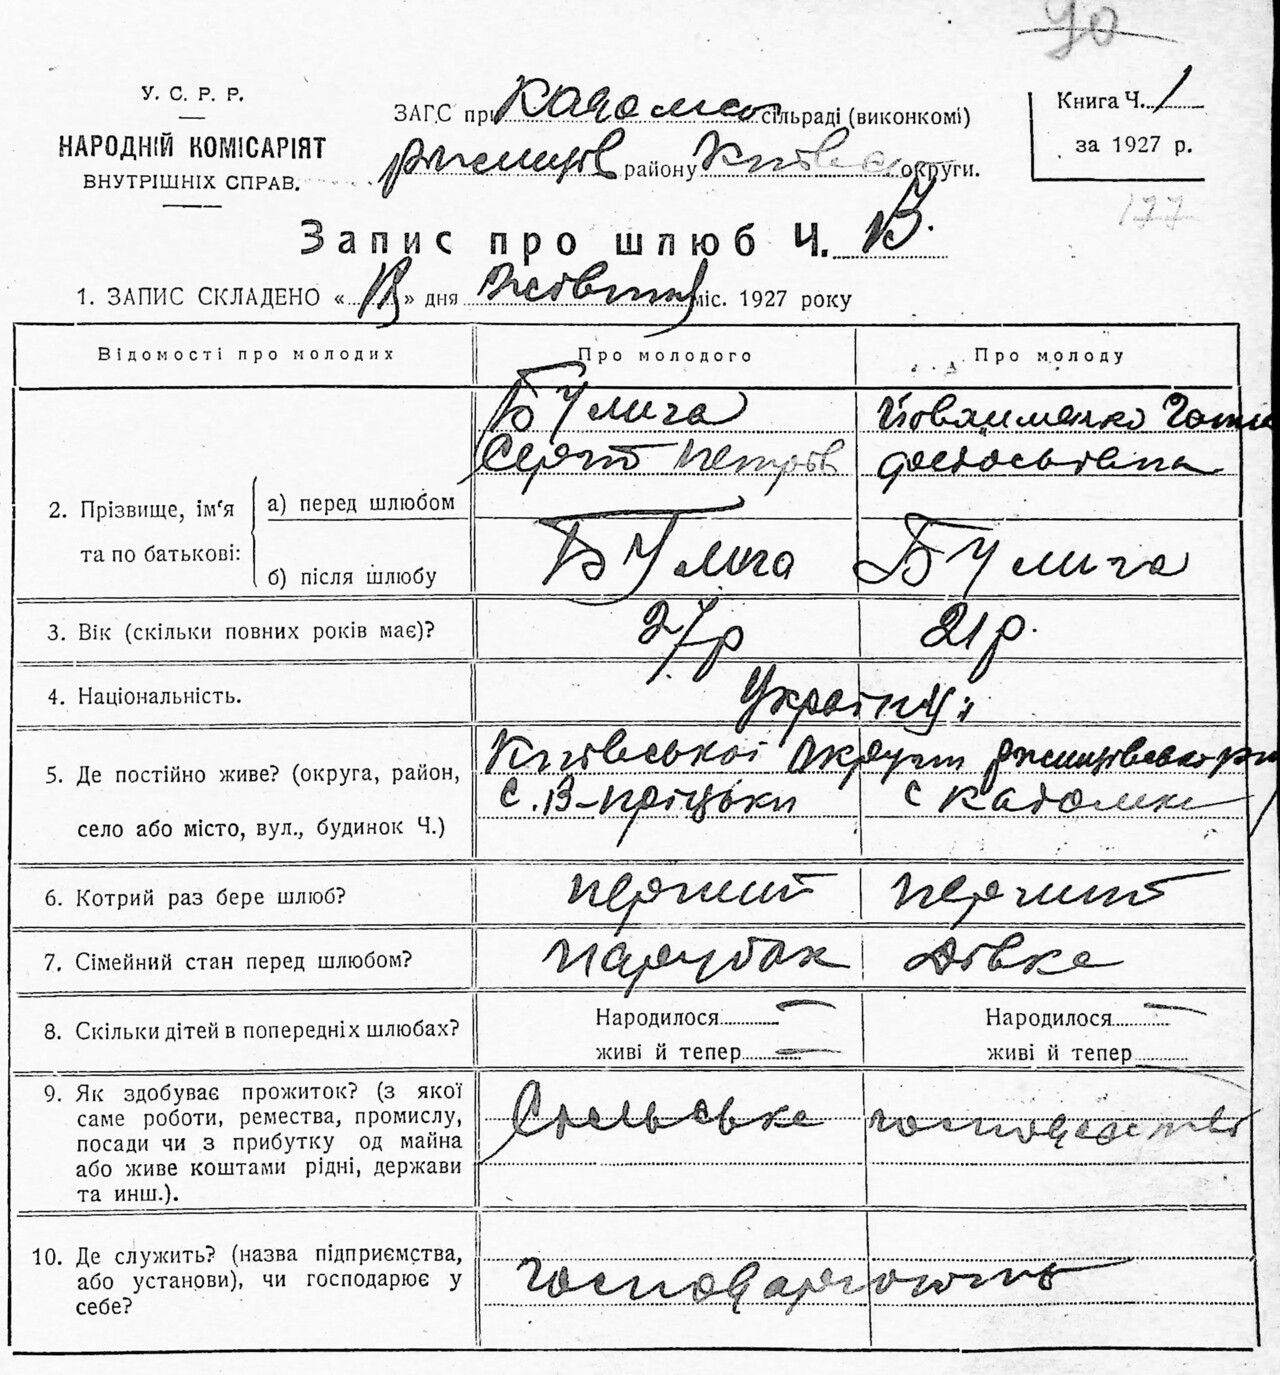 90
У. С. Р. Р.
НАРОДНІЙ КОМІСАРІЯТ
ВНУТРІШНІХ СПРАВ.
ЗАГС при сільраді (виконкомі)
району округи.
Книга Ч. 1
за 1927 р.
177
Запис про шлюб Ч.
1. ЗАПИС СКЛАДЕНО « » дня Жовтня міс. 1927 року
Відомості про молодих Про молодого Про молоду
2. Прізвище, ім'я та по батькові:
а) перед шлюбом
Булига
Сергій Петров
Феодосьівна
б) після шлюбу
Булига Булига
3. Вік (скільки повних років має)? 27р 21р.
4. Національність. Україн
5. Де постійно живе? (округа, район,
село або місто, вул., будинок Ч.)
Київської Округи Ржищівсько
с. В-Пріцьки с
6. Котрий раз бере шлюб? перший перший
7. Сімейний стан перед шлюбом? парубок дівка
8. Скільки дітей в попередніх шлюбах? Народилося — Народилося —
живі й тепер — живі й тепер
9. Як здобуває прожиток? (з якої
саме роботи, ремества, промислу,
посади чи з прибутку од майна
або живе коштами рідні, держави
та инш.).
Сільське господарство
10. Де служить? (назва підприємства,
або установи), чи господарює у
себе?
господарюють